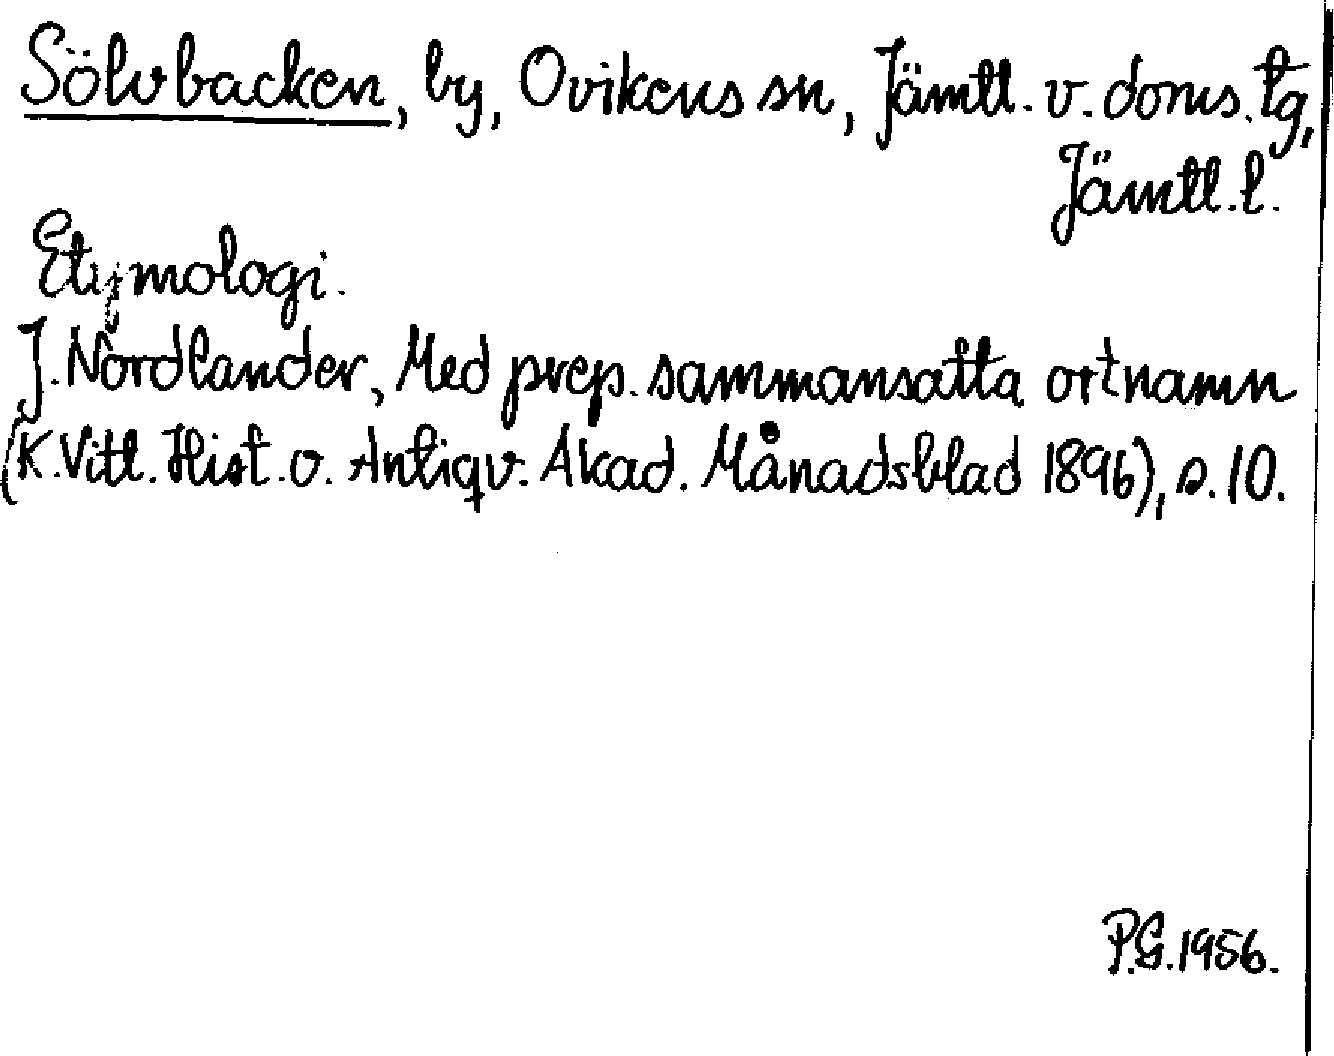 Sölvbacken, by, Ovikens sn, Jämtl. v. doms. tg,
Jämtl. l.
Etymologi.
J. Nordlander, Med prep. sammansatta ortnamn
(K. Vitt. Hist. o. Antiqv. Akad. Månadsblad 1896), s. 10.
P.G. 1956.